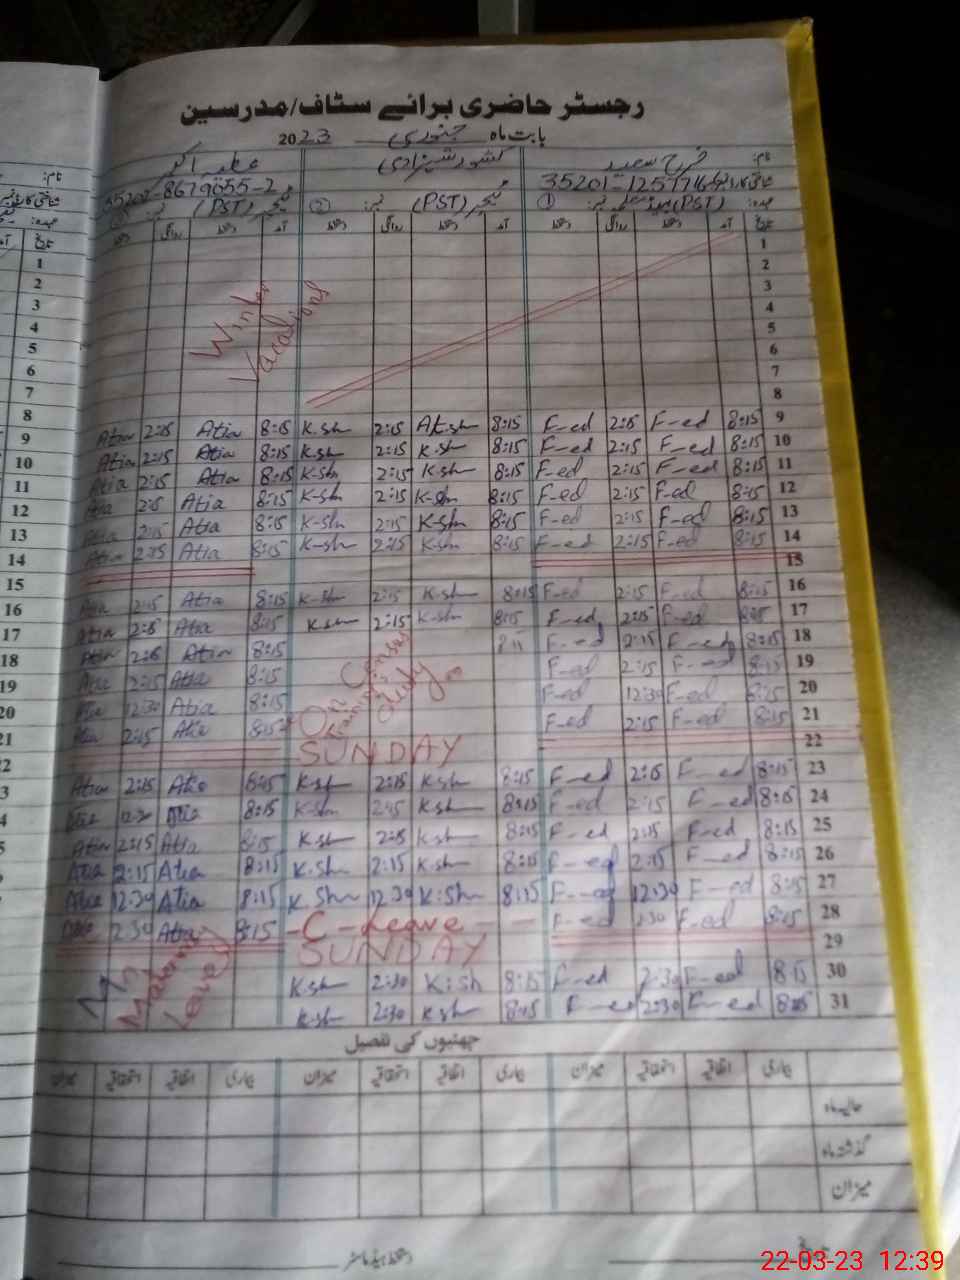 رجسٹر حاضری برائے سٹاف/مدرسین
بابت ماہ جنوری 2023
نام: فرح سعید کشور شہزادی عطیہ اکبر
35202-8679655-2
عہدہ: (PST) نمبر: ① ٹیچر (PST) نمبر: ② ٹیچر (PST) نمبر:
تاریخ آمد دستخط روانگی دستخط آمد دستخط روانگی دستخط آمد دستخط روانگی دستخط
1
2
3
4
5
6
7
8
Winter
Vacations
Atia 2:15 Atia 8:15 K.sh 2:15 K.sh 8:15 F-ed 2:15 F-ed 8:15 9
Atia 2:15 Atia 8:15 K-sh 2:15 K-sh 8:15 F-ed 2:15 F-ed 8:15 10
Atia 2:15 Atia 8:15 K-sh 2:15 K-sh 8:15 F-ed 2:15 F-ed 8:15 11
Atia 2:15 Atia 8:15 K-sh 2:15 K-sh 8:15 F-ed 2:15 F-ed 8:15 12
Atia 2:15 Atia 8:15 K-sh 2:15 K-sh 8:15 F-ed 2:15 F-ed 8:15 13
Atia 2:15 Atia 8:15 K-sh 2:15 K-sh 8:15 F-ed 2:15 F-ed 8:15 14
15
Atia 2:15 Atia 8:15 K-sh 2:15 K-sh 8:15 F-ed 2:15 F-ed 8:15 16
Atia 2:15 Atia 8:15 K-sh 2:15 K-sh 8:15 F-ed 2:15 F-ed 8:15 17
Atia 2:15 Atia 8:15 F-ed 2:15 F-ed 8:15 18
Atia 2:15 Atia 8:15 F-ed 2:15 F-ed 8:15 19
Atia 12:30 Atia 8:15 F-ed 12:30 F-ed 8:15 20
Atia 2:15 Atia 8:15 F-ed 2:15 F-ed 8:15 21
On Census
Training
duty
SUNDAY 22
Atia 2:15 Atia 8:15 K-sh 2:15 K-sh 8:15 F-ed 2:15 F-ed 8:15 23
Atia Atia 8:15 K-sh 2:15 K-sh 8:15 F-ed 2:15 F-ed 8:15 24
Atia 2:15 Atia 8:15 K-sh 2:15 K-sh 8:15 F-ed 2:15 F-ed 8:15 25
Atia 2:15 Atia 8:15 K-sh 2:15 K-sh 8:15 F-ed 2:15 F-ed 8:15 26
Atia 12:30 Atia 8:15 K-sh 12:30 K-sh 8:15 F-ed 12:30 F-ed 8:15 27
Atia 2:30 Atia 8:15 -C-Leave-- F-ed 2:30 F-ed 8:15 28
SUNDAY 29
K-sh 2:30 K-sh 8:15 F-ed 2:30 F-ed 8:15 30
K-sh 2:30 K-sh 8:15 F-ed 2:30 F-ed 8:15 31
Maternity
Leave
چھٹیوں کی تفصیل
بیماری اتفاقیہ استحقاقیہ میزان بیماری اتفاقیہ استحقاقیہ میزان بیماری اتفاقیہ استحقاقیہ میزان
حالیہ ماہ
گذشتہ ماہ
میزان
تاریخ دستخط ہیڈ ماسٹر
نام:
شناختی کارڈ نمبر
عہدہ:
تاریخ
1
2
3
4
5
6
7
8
9
10
11
12
13
14
15
16
17
18
19
20
21
22-03-23 12:39